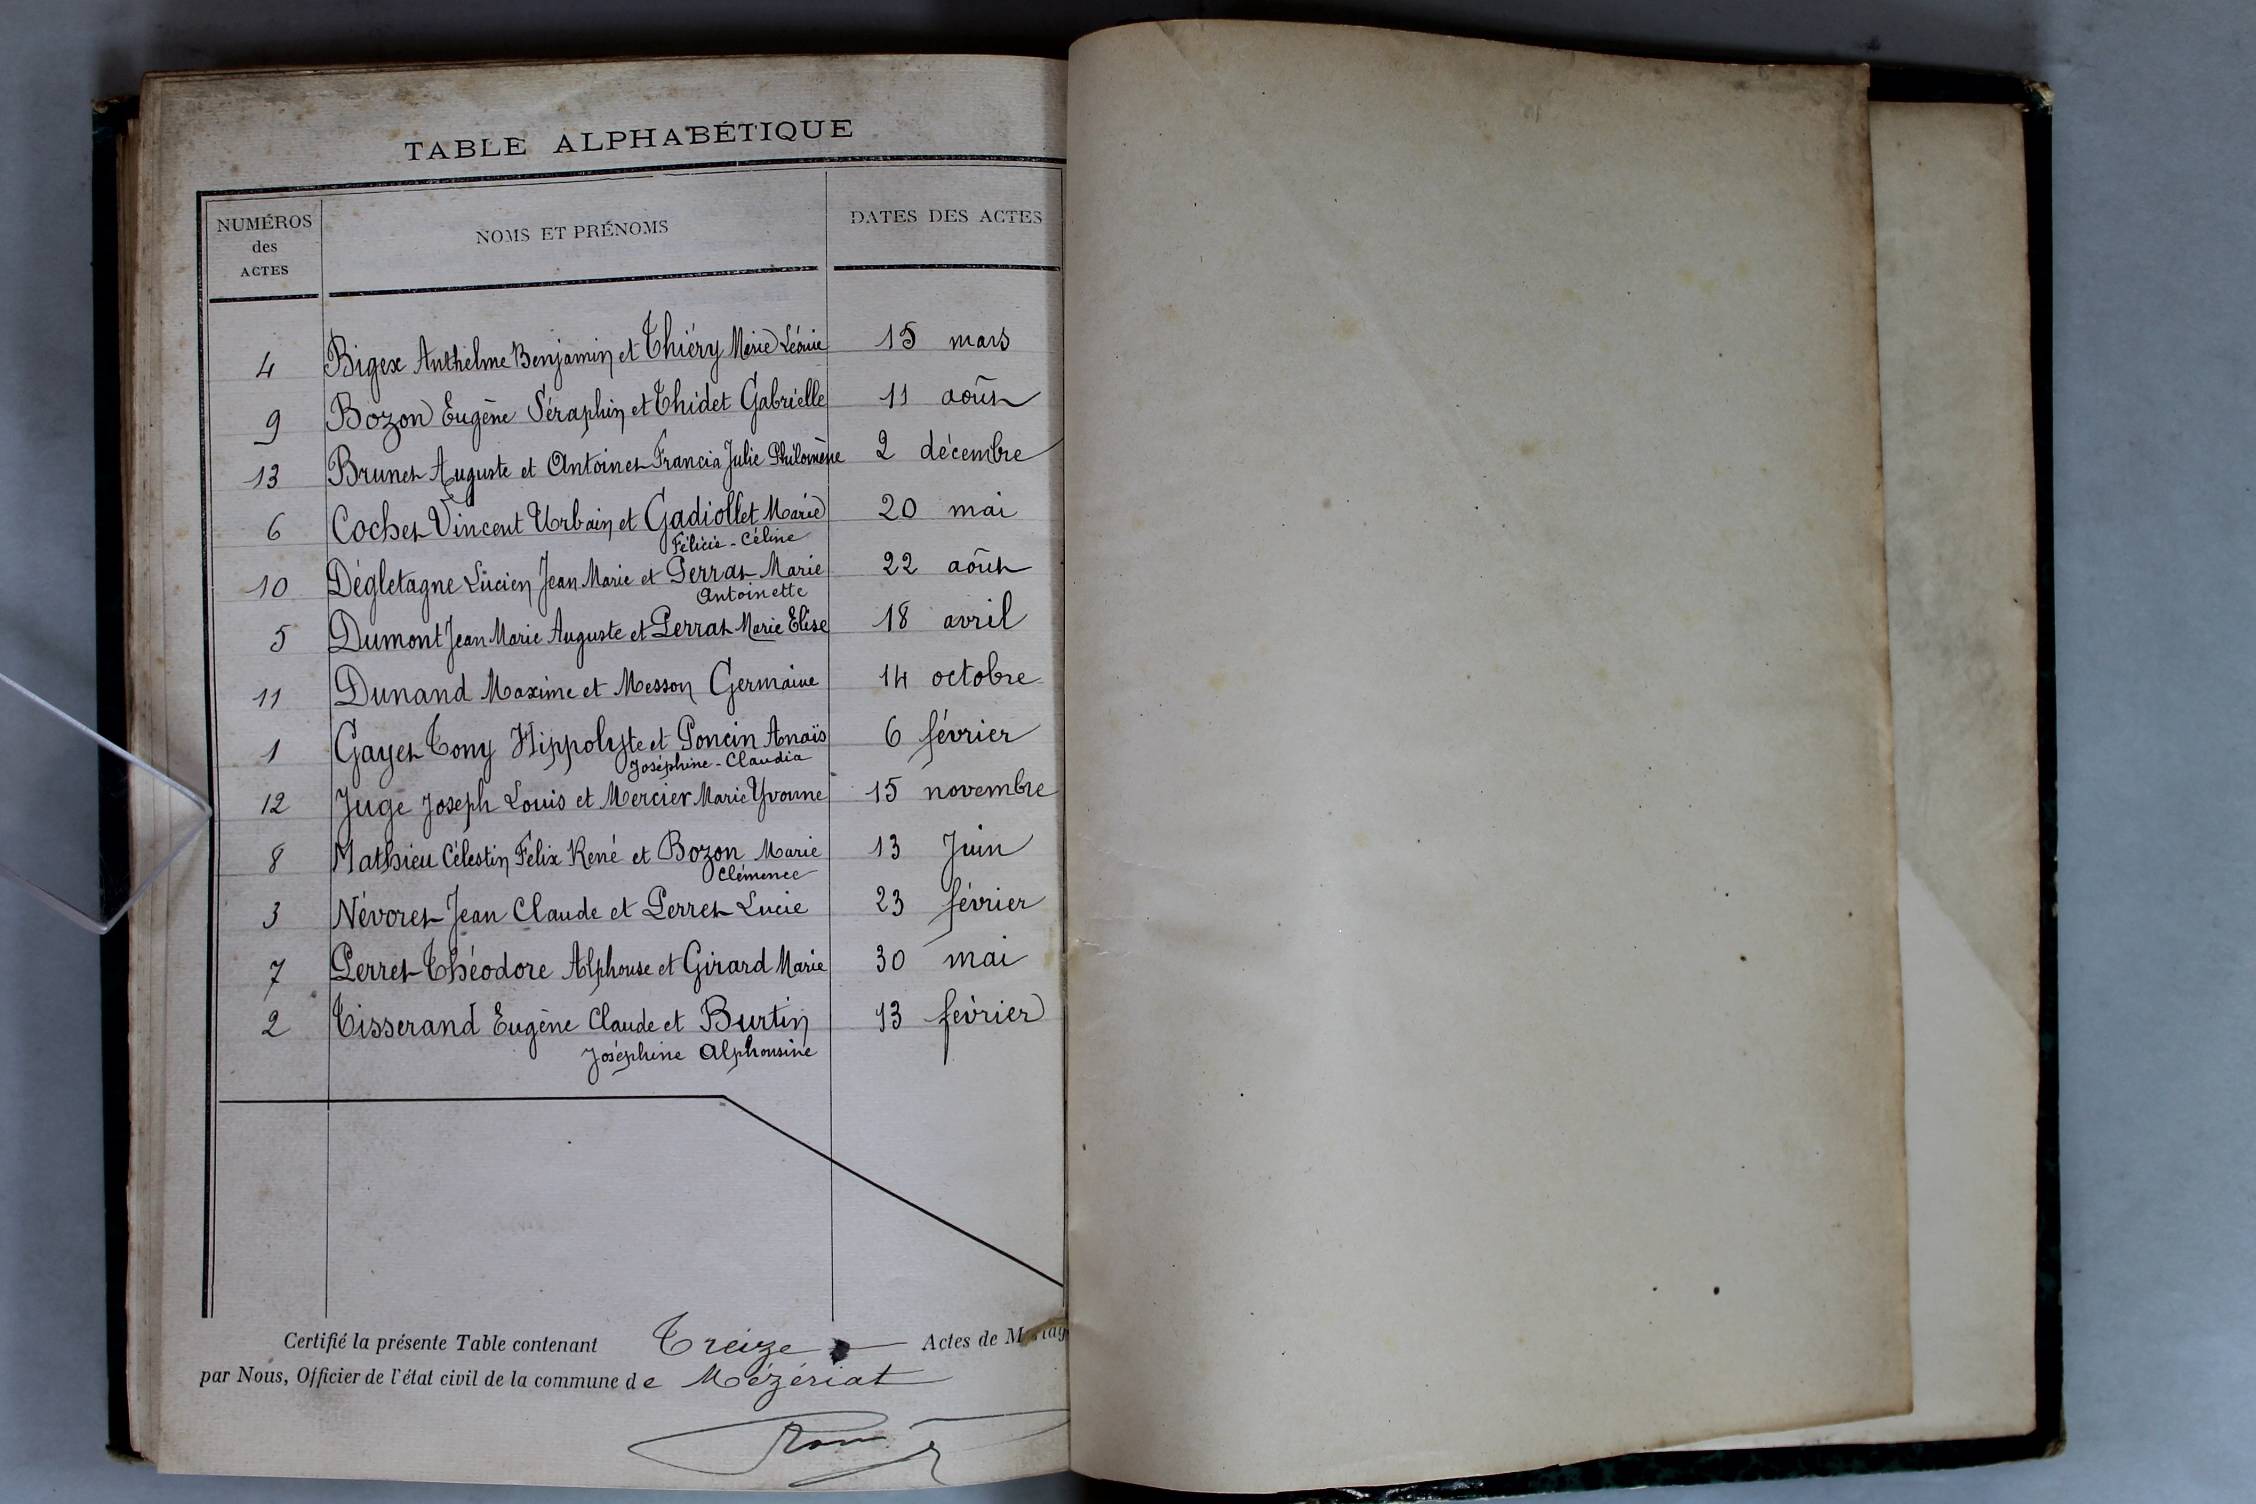 TABLE ALPHABÉTIQUE
NUMÉROS des ACTES NOMS ET PRÉNOMS DATES DES ACTES
4 Bigex Anthelme Benjamin et Thiéry Marie Léonie 15 mars
9 Bozon Eugène Séraphin et Thidet Gabrielle 11 août
13 Brunet Auguste et Antoinet Francia Julie Philomène 2 décembre
6 Cochet Vincent Urbain et Gadiollet Marie 20 mai
Félicie - Céline
10 Dégletagne Lucien Jean Marie et Perrat Marie 22 août
Antoinette
5 Dumont Jean Marie Auguste et Perrat Marie Elise 18 avril
11 Dunand Maxime et Messon Germaine 14 octobre
1 Gayet Tony Hippolyte et Poncin Anaïs 6 février
Joséphine - Claudia
12 Juge Joseph Louis et Mercier Marie Yvonne 15 novembre
8 Mathieu Célestin Félix René et Bozon Marie 13 Juin
Clémence
3 Névoret Jean Claude et Perret Lucie 23 février
7 Perret Théodore Alphonse et Girard Marie 30 mai
2 Tisserand Eugène Claude et Burtin 13 février
Joséphine Alphonsine
Certifié la présente Table contenant Treize Actes de Mariag
par Nous, Officier de l'état civil de la commune de Mézériat